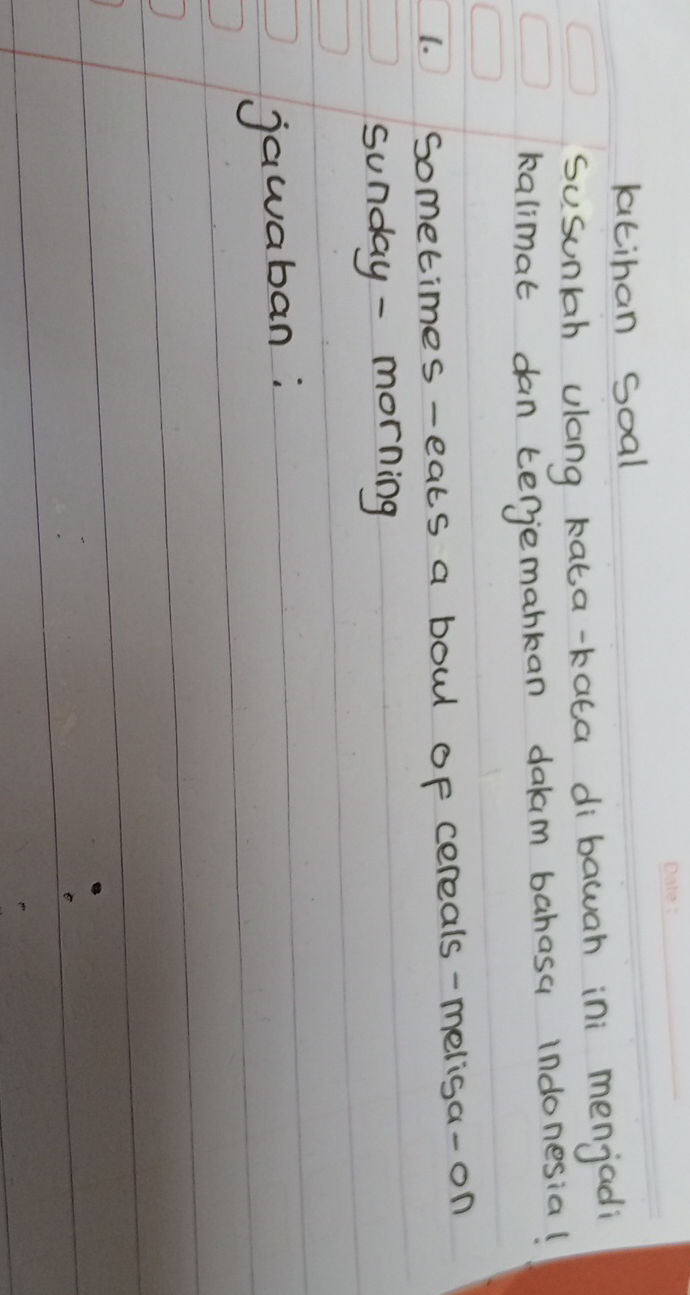 Date:
latihan soal
susunlah ulang kata-kata di bawah ini menjadi
kalimat dan terjemahkan dalam bahasa indonesia!
1. Sometimes-eats a bowl of cereals-melisa-on
sunday-morning
jawaban: